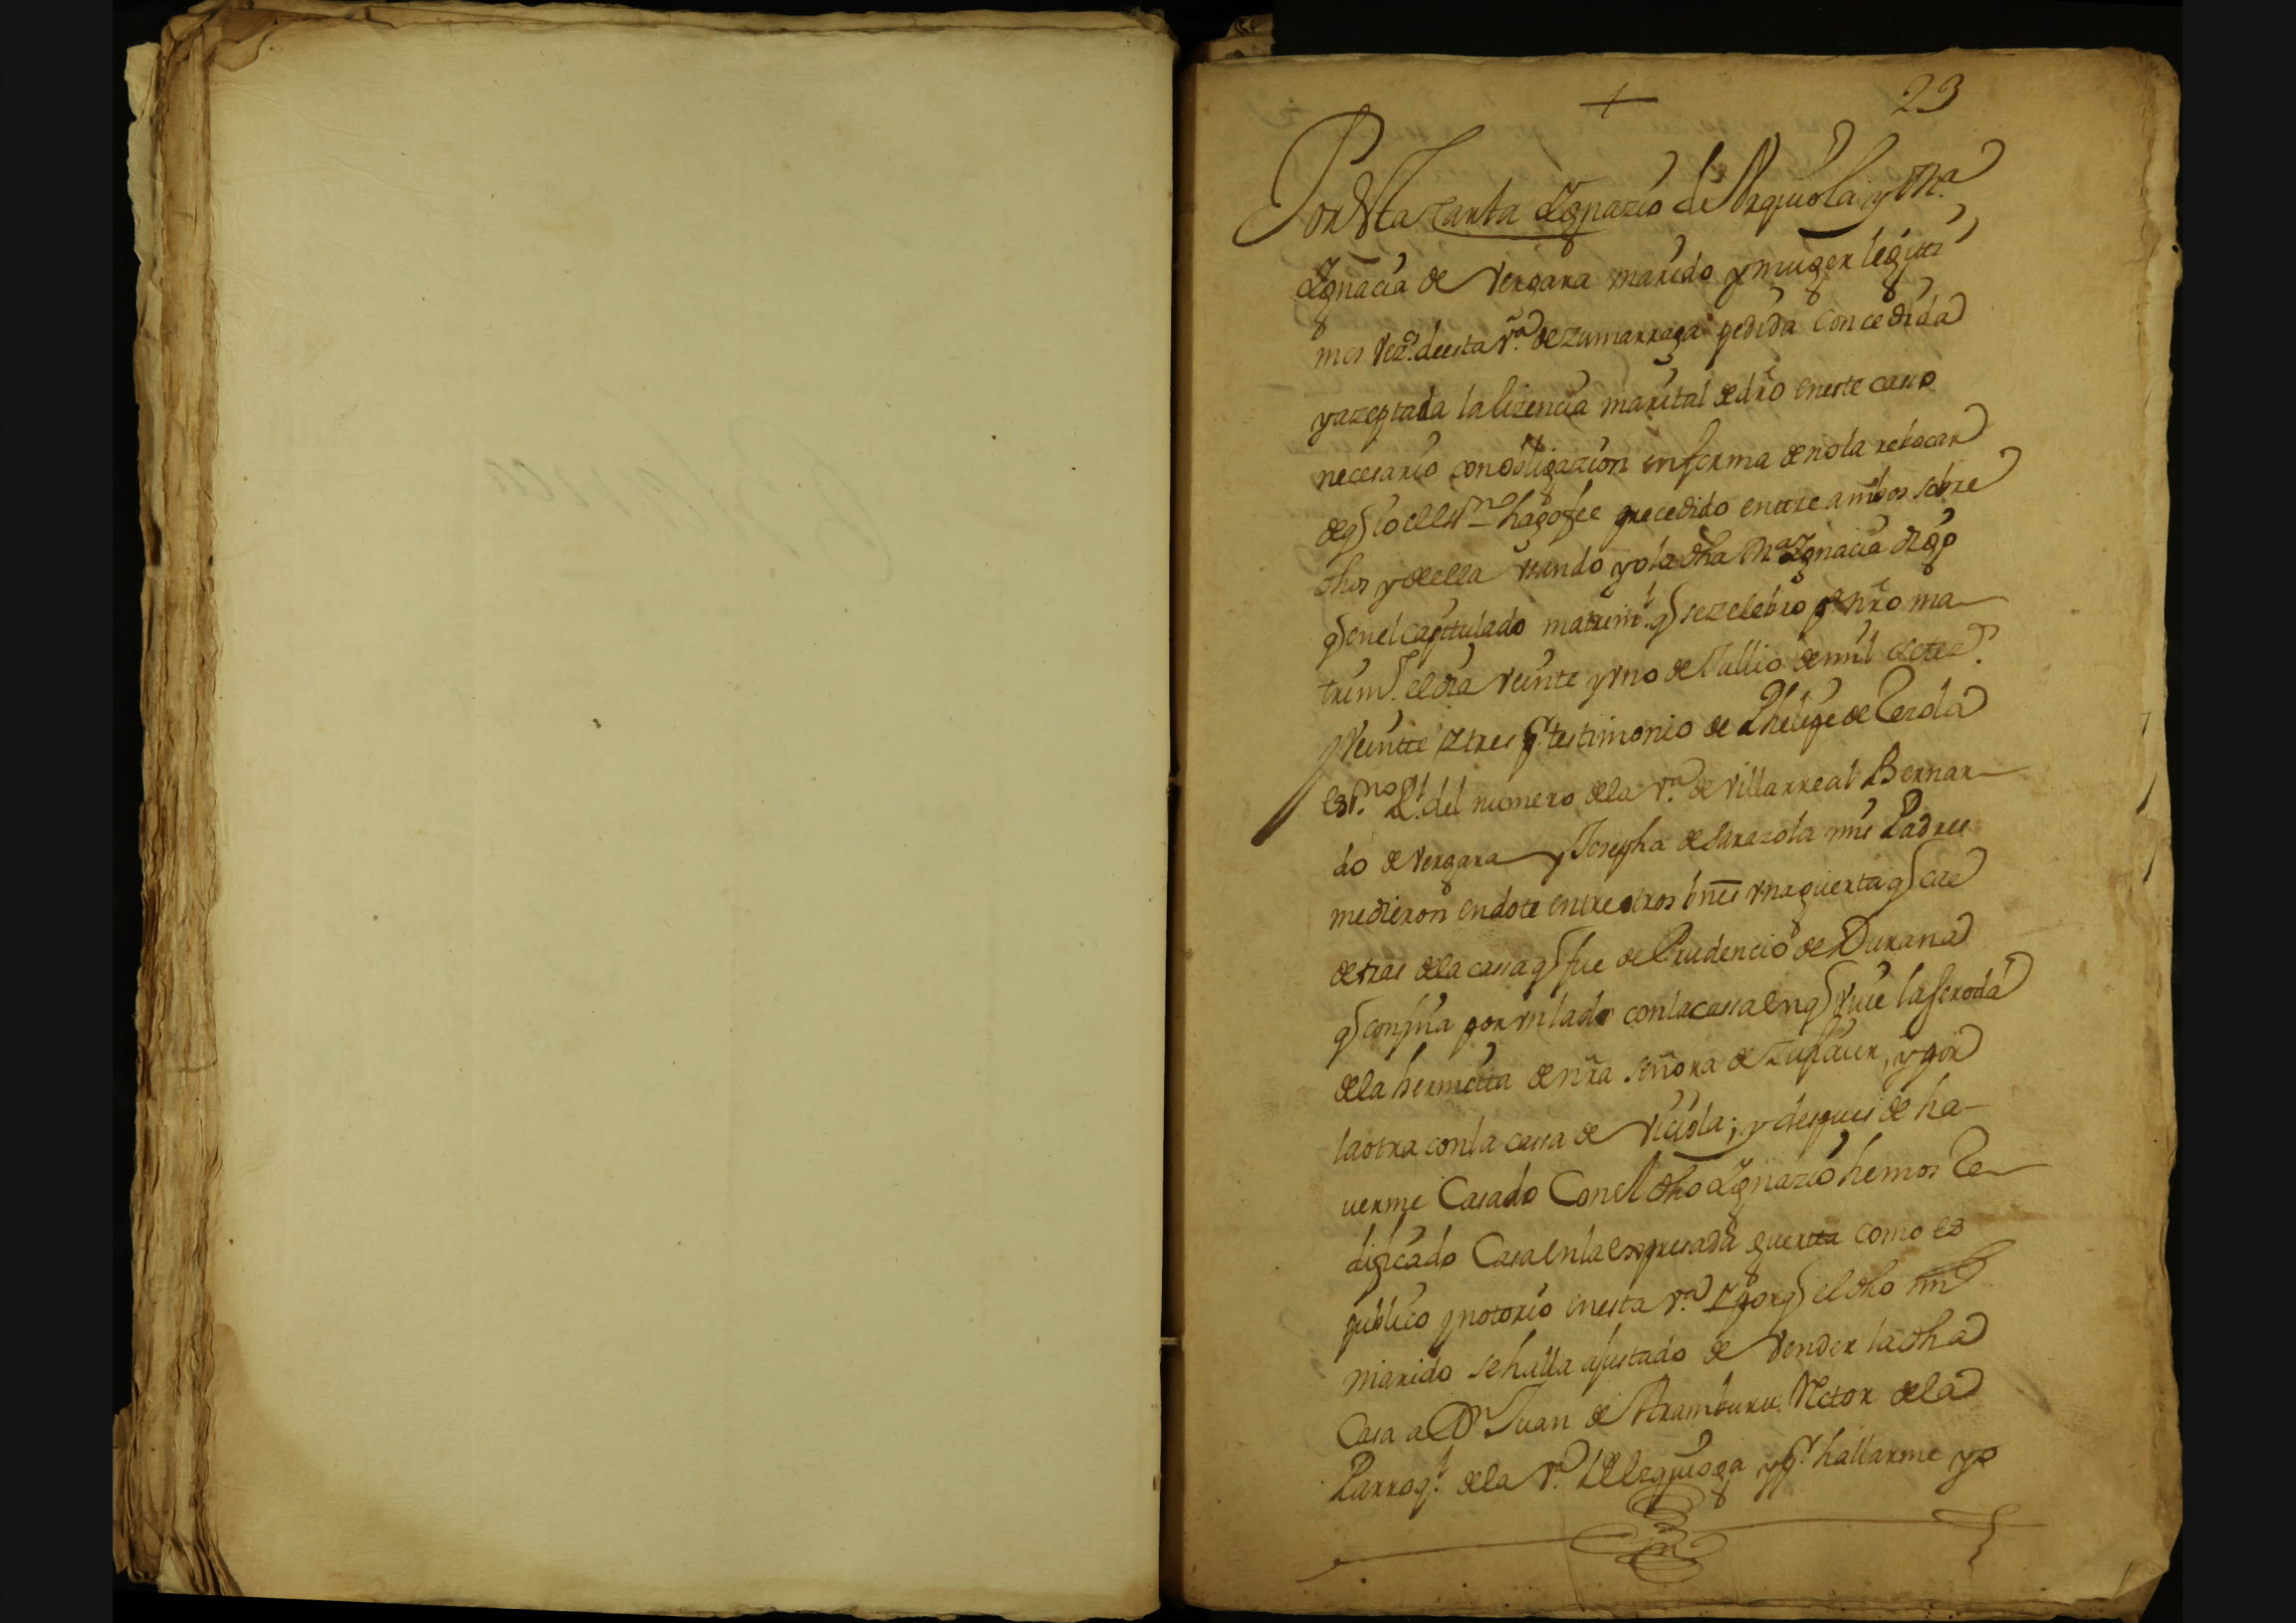 +
23
Por esta Carta Ygnazio de Urquiola y M.ª
Ygnacia de Vergara marido y muger legiti
mos vez.ᵒˢ de esta v.ª de zumarraga pedida concedida
y azeptada la lizencia marital de dr̃o en este caso
necesario con obligazion en forma de no la rebocar
de q̃ io el ess.ⁿᵒ hago fee precedido enttre ambos sobre
dhos y de ella usando yo la dha M.ª Ygnacia digo
q̃ en el capitulado matrim.ˡ q̃ se zelebro p.ª nr̃o ma
trim.º el dia veinte y uno de Jullio de mil settez.ᵒˢ
y Veintte y tres p.ʳ testimonio de Phelipe de Zerola
es.ⁿᵒ R.ˡ del numero de la v.ª de villarreal Bernar
do de Vergara y Josepha de Sarazola mis Padres
me dieron en dote entre otros vnẽs una guerta q̃ cae
detras de la casa q̃ fue de Prudencio de Durana
q̃ confina por un lado con la casa en q̃ vive la serora
de la hermitta de nr̃a señora de zufiaur, y por
la otra con la casa de Uciola; y despues de ha-
uerme Casado Con el dho Ygnazio hemos Re
dificado Casa en la expresada guertta como es
publico y notorio en esta v.ª y porq̃ el dho mi
marido se halla ajustado de vender la dha
Casa a D.ⁿ Juan de Aramburu Retor de la
Parroq.ˡ de la v.ª de Ezquioga y p.ʳ hallarme yo